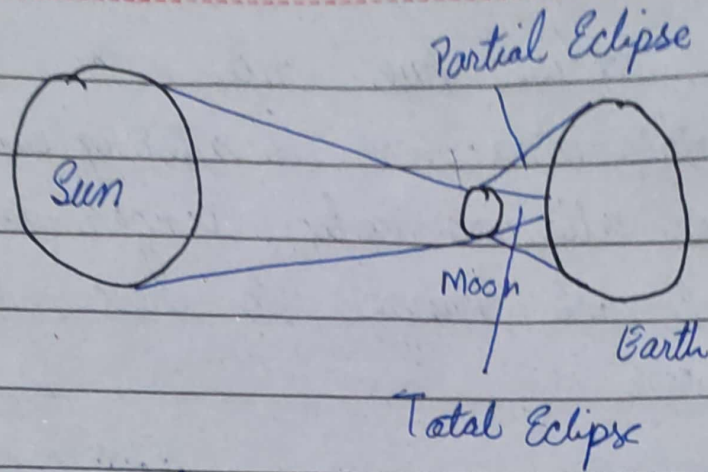 Partial Eclipse
Sun
Moon
Earth
Total Eclipse